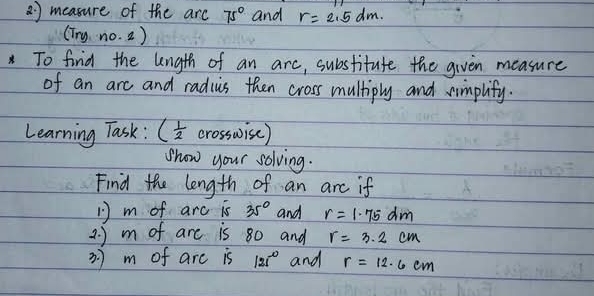 2.) measure of the arc 75° and r= 2.5 dm.
(Try no. 2)
* To find the length of an arc, substitute the given measure
of an arc and radius then cross multiply and simplify.
Learning Task: (½ crosswise)
Show your solving.
Find the length of an arc if
1.) m of arc is 35° and r= 1.75 dm
2.) m of arc is 80 and r= 3.2 cm
3.) m of arc is 125° and r= 12.6 cm